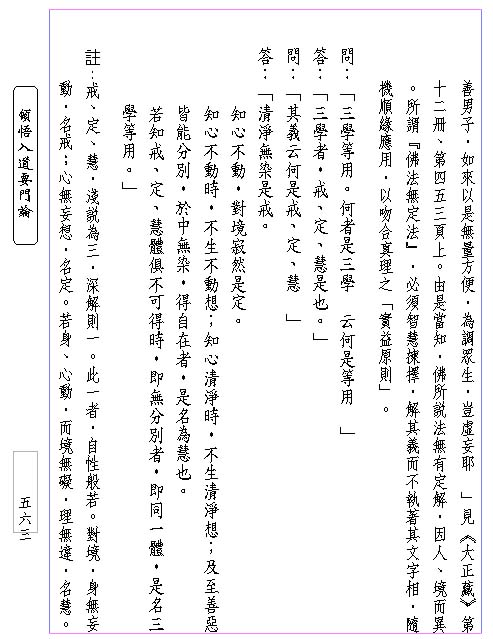 善男子，如來以是無量方便，為調眾生，豈虛妄耶　」見《大正藏》第
十二冊、第四五三頁上。由是當知，佛所說法無有定解，因人、境而異
。所謂『佛法無定法』，必須智慧揀擇，解其義而不執著其文字相，隨
機順緣應用，以吻合真理之「實益原則」。
問：「三學等用。何者是三學　云何是等用　」
答：「三學者，戒、定、慧是也。」
問：「其義云何是戒、定、慧　」
答：「清淨無染是戒。
知心不動，對境寂然是定。
知心不動時，不生不動想；知心清淨時，不生清淨想；及至善惡
皆能分別，於中無染，得自在者，是名為慧也。
若知戒、定、慧體俱不可得時，即無分別者，即同一體，是名三
學等用。」
註：戒、定、慧，淺說為三，深解則一。此一者，自性般若。對境，身無妄
動，名戒；心無妄想，名定。若身、心動，而境無礙，理無違，名慧。
頓悟入道要門論
五六三